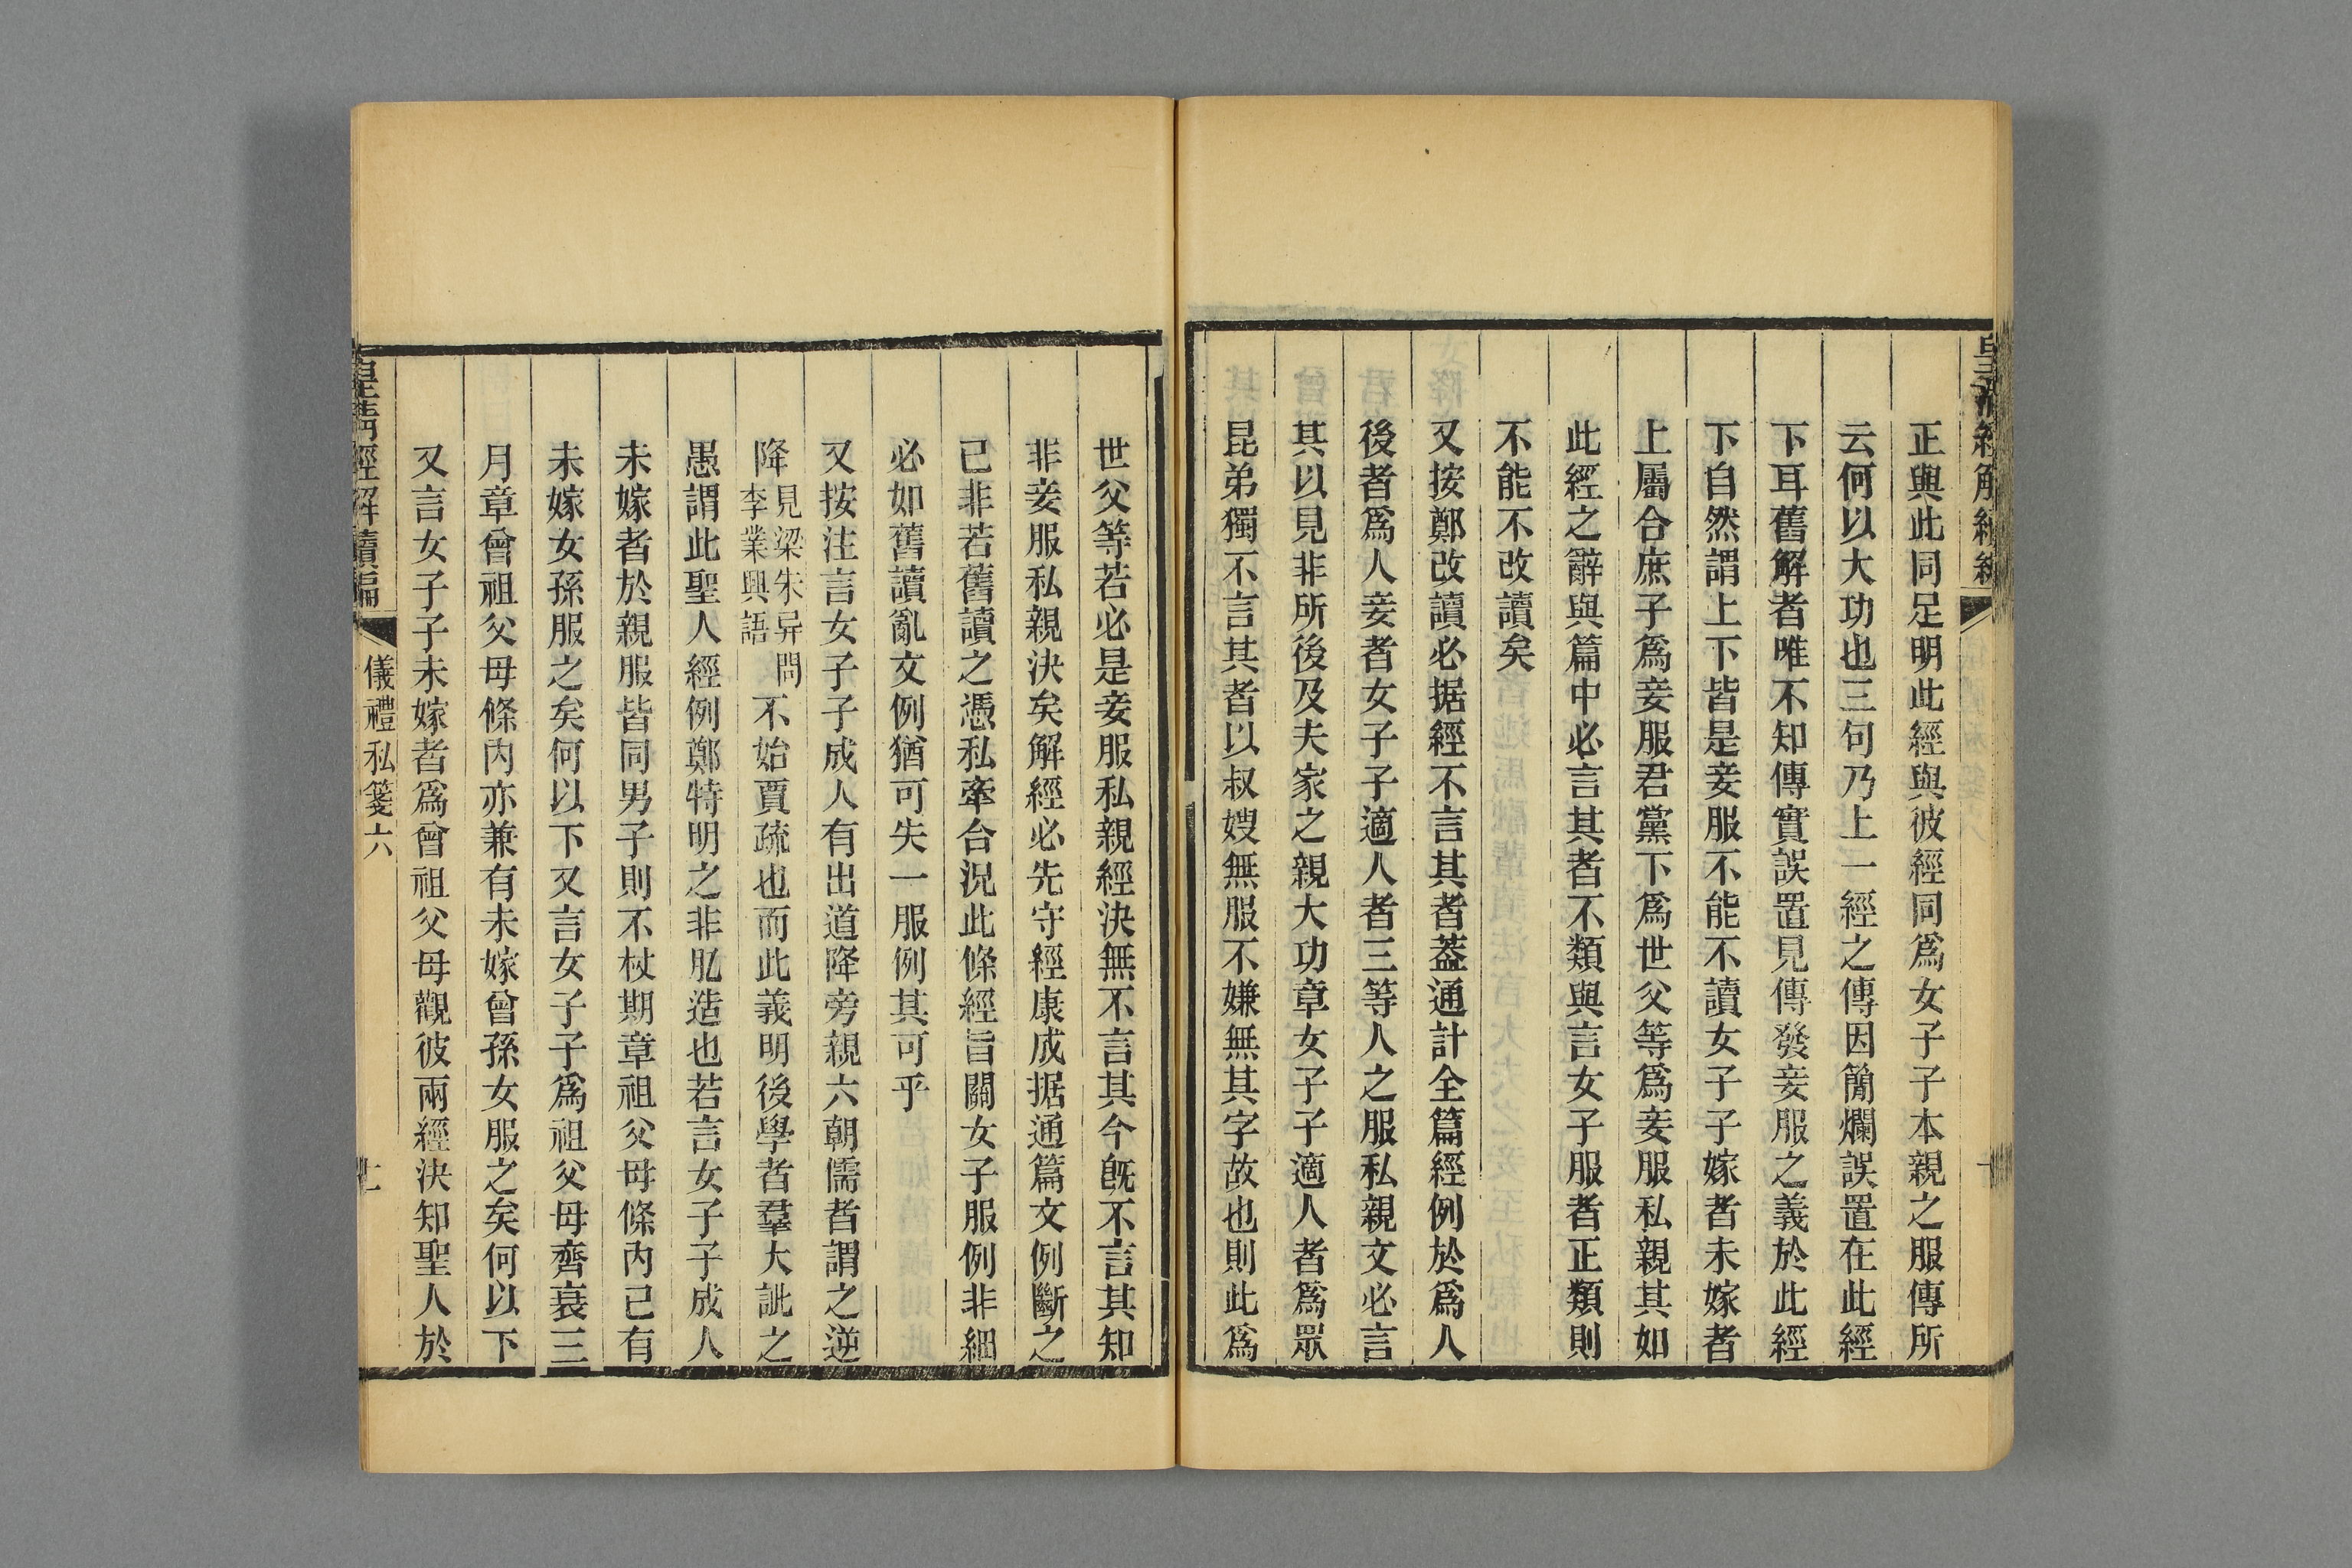 皇清經解續編
正與此同足明此經與彼經同爲女子子本親之服傳所
云何以大功也三句乃上一經之傳因簡爛誤置在此經
下耳舊解者唯不知傳實誤置見傳發妾服之義於此經
下自然謂上下皆是妾服不能不讀女子子嫁者未嫁者
上屬合庶子爲妾服君黨下爲世父等爲妾服私親其如
此經之辭與篇中必言其者不類與言女子服者正類則
不能不改讀矣
又按鄭改讀必据經不言其者葢通計全篇經例於爲人
後者爲人妾者女子子適人者三等人之服私親文必言
其以見非所後及夫家之親大功章女子子適人者爲眾
昆弟獨不言其者以叔嫂無服不嫌無其字故也則此爲
世父等若必是妾服私親經決無不言其今旣不言其知
非妾服私親決矣解經必先守經康成据通篇文例斷之
已非若舊讀之憑私牽合況此條經旨關女子服例非細
必如舊讀亂文例猶可失一服例其可乎
又按注言女子子成人有出道降旁親六朝儒者謂之逆
降見梁朱异問李業興語不始賈疏也而此義明後學者羣大訿之
愚謂此聖人經例鄭特明之非肊造也若言女子子成人
未嫁者於親服皆同男子則不杖期章祖父母條內已有
未嫁女孫服之矣何以下又言女子子爲祖父母齊衰三
月章曾祖父母條內亦兼有未嫁曾孫女服之矣何以下
又言女子子未嫁者爲曾祖父母觀彼兩經決知聖人於
皇清經解續編
儀禮私箋六